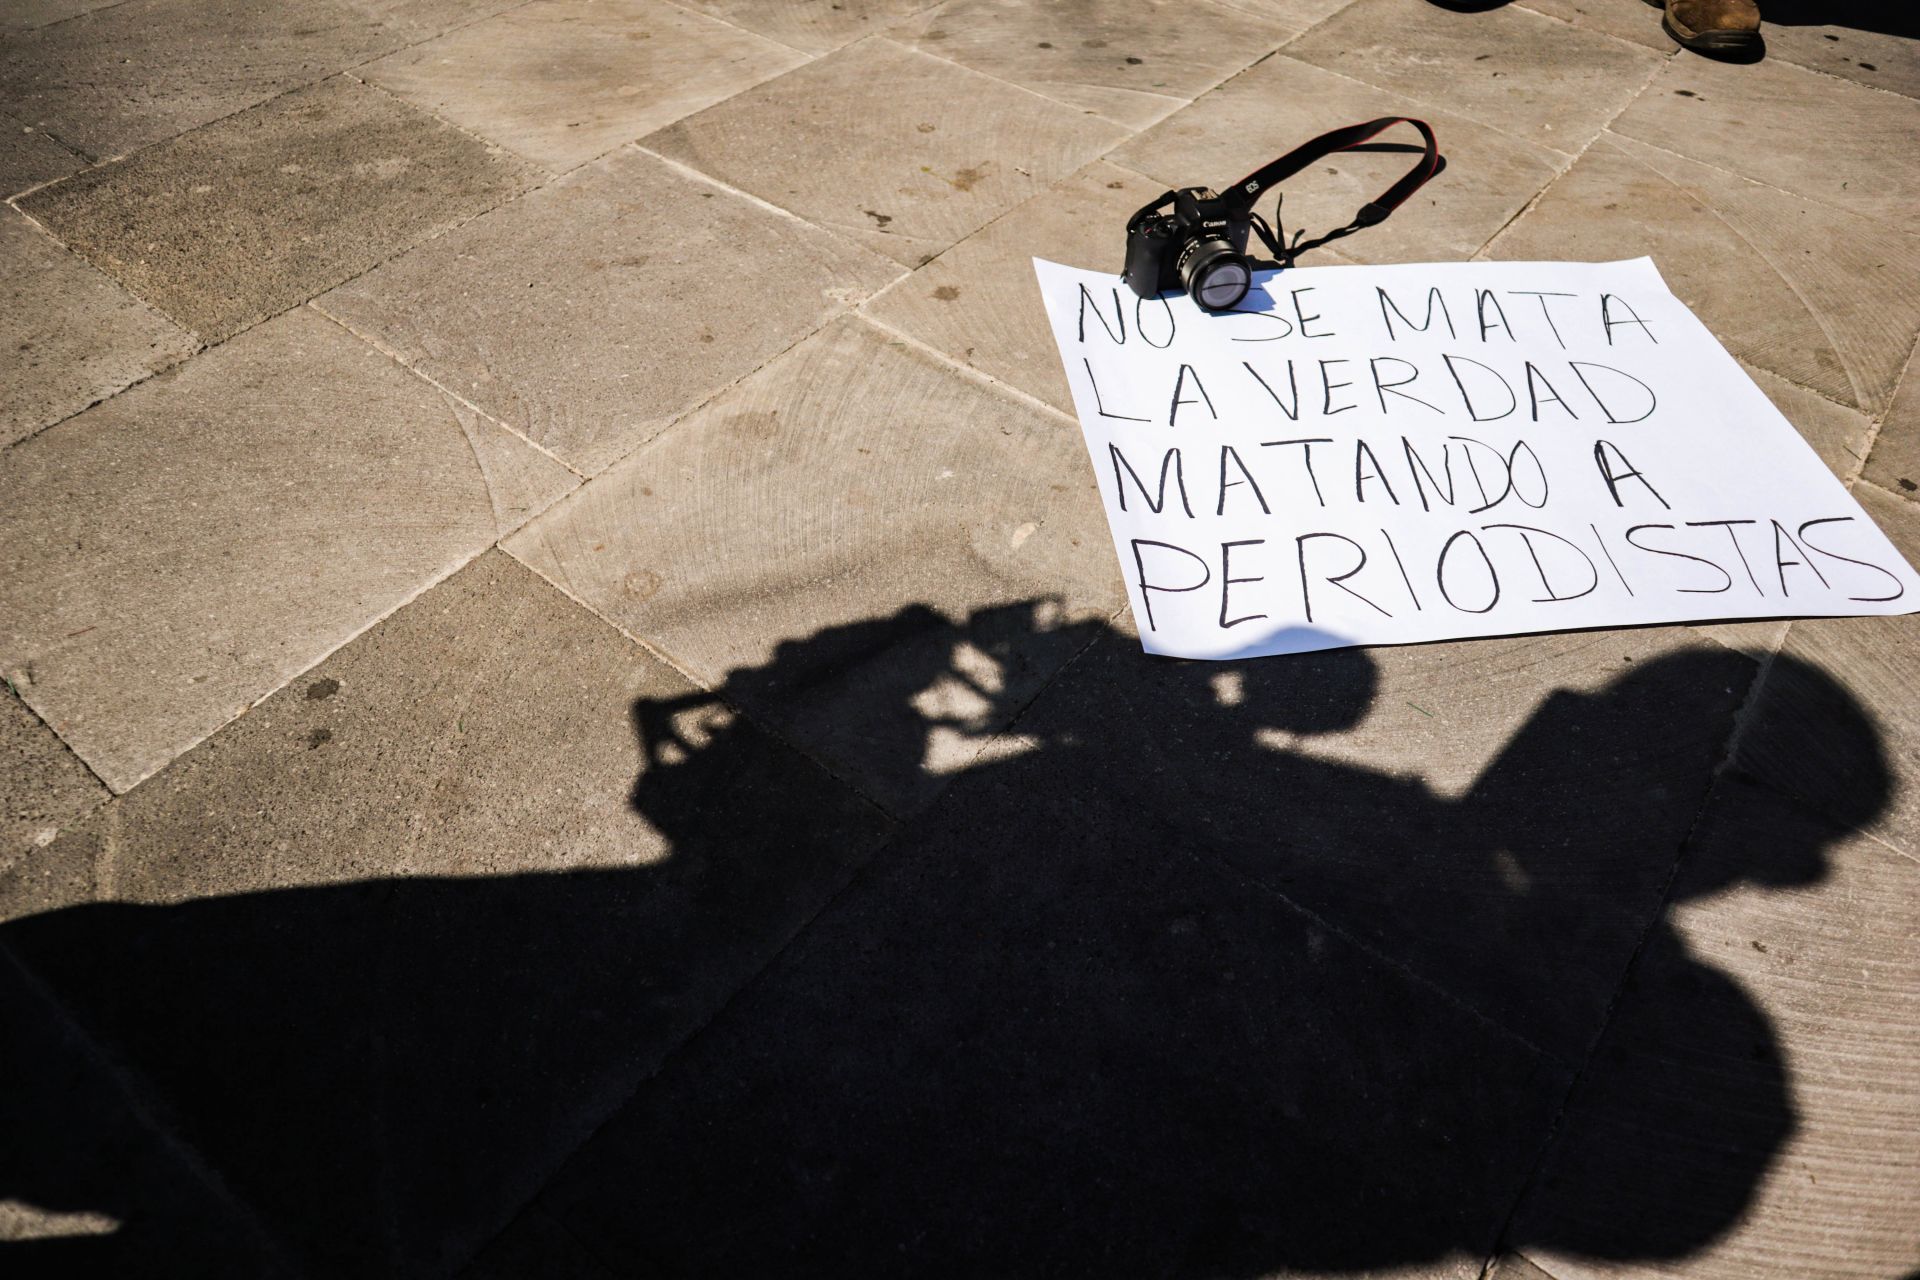 EOS
Canon
NO SE MATA
LA VERDAD
MATANDO A
PERIODISTAS